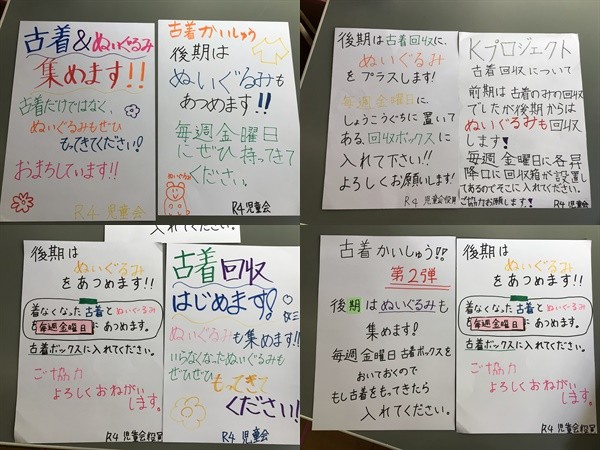 古着&ぬいぐるみ
集めます!!
古着だけではなく、
ぬいぐるみもぜひ
もってきてください!
おまちしています!!
R4 児童会
古着かいしゅう
後期は
ぬいぐるみも
あつめます!!
毎週金曜日
にぜひ持ってきて
ください。
R4 児童会
後期は古着回収に、
ぬいぐるみ
をプラスします!
毎週金曜日に、
しょうこうぐちに置いて
ある、回収ボックスに
入れて下さい!!
よろしくお願いします!
R4 児童会役員
Kプロジェクト
古着回収について
前期は古着のみの回収
でしたが後期からは
ぬいぐるみも回収
します!
毎週金曜日に各昇
降口に回収箱が設置し
てあるのでそこに入れてください。
ご協力お願します!
R4 児童会
入れてください。
後期は
ぬいぐるみ
をあつめます!!
着なくなった古着とぬいぐるみ
を毎週金曜日にあつめます。
古着ボックスに入れてください。
ご協力
よろしくおねがい
します。
R4 児童会役員
古着回収
はじめます!
ぬいぐるみも集めます!!
いらなくなったぬいぐるみも
ぜひぜひ
もってきて
ください!
R4 児童会
古着かいしゅう!!
第2弾
後期はぬいぐるみも
集めます!
毎週金曜日古着ボックスを
おいておくので
もし古着をもってきたら
入れてください。
R4 児童会
後期は
ぬいぐるみ
をあつめます!!
着なくなった古着とぬいぐるみ
を毎週金曜日にあつめます。
古着ボックスに入れてください。
ご協力
よろしくおねがい
します。
R4 児童会役員